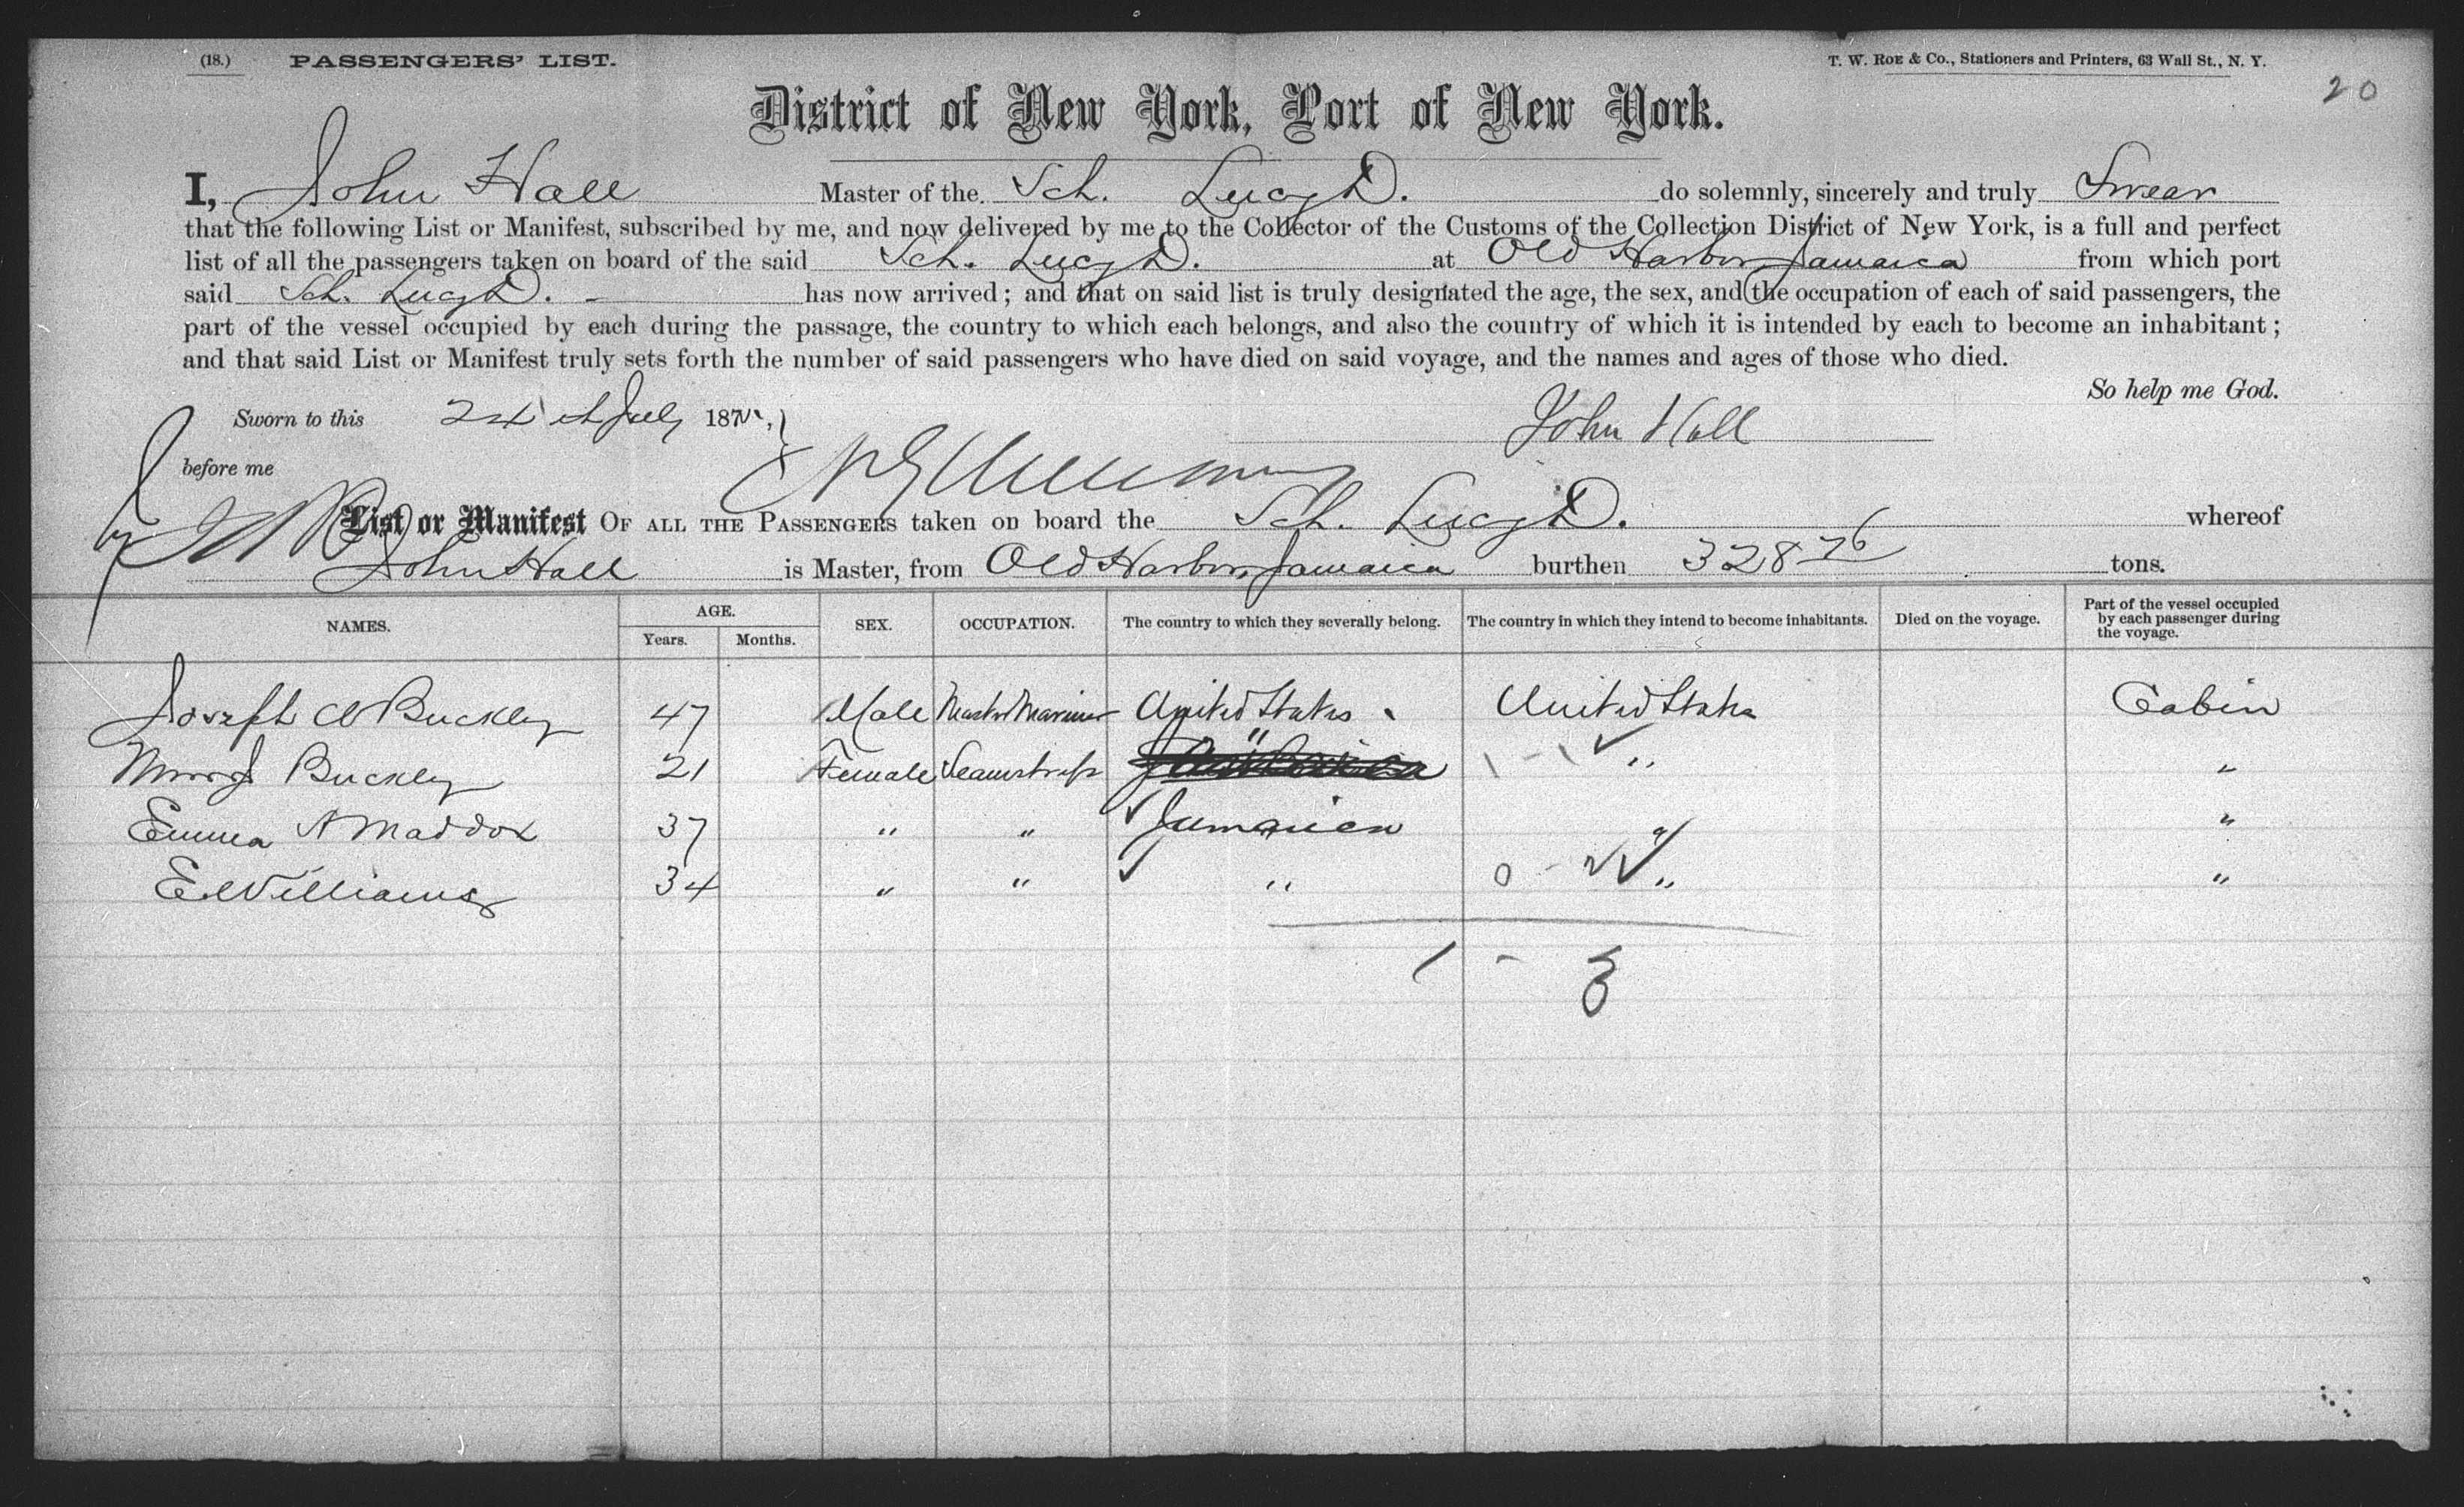 (18.) PASSENGERS' LIST.
T. W. ROE & Co., Stationers and Printers, 63 Wall St., N. Y.
20
District of New York, Port of New York.
I, John Hall Master of the Sch. Lucy D. do solemnly, sincerely and truly Swear
that the following List or Manifest, subscribed by me, and now delivered by me to the Collector of the Customs of the Collection District of New York, is a full and perfect
list of all the passengers taken on board of the said Sch. Lucy D. at Old Harbor, Jamaica from which port
said Sch. Lucy D. - has now arrived; and that on said list is truly designated the age, the sex, and the occupation of each of said passengers, the
part of the vessel occupied by each during the passage, the country to which each belongs, and also the country of which it is intended by each to become an inhabitant;
and that said List or Manifest truly sets forth the number of said passengers who have died on said voyage, and the names and ages of those who died.
So help me God.
Sworn to this 24th July 187
John Hall
before me
List or Manifest OF ALL THE PASSENGERS taken on board the Sch. Lucy D. whereof
John Hall is Master, from Old Harbor, Jamaica burthen 328 76 tons.
NAMES. AGE. Years. Months. SEX. OCCUPATION. The country to which they severally belong. The country in which they intend to become inhabitants. Died on the voyage. Part of the vessel occupied by each passenger during the voyage.
Joseph Buckley 47 Male Master Mariner United States United States Cabin
Buckley 21 Female Seamstress " " "
Emma A Maddox 37 " " Jamaica " "
E. Williams 34 " " " 0 - 2 " "
1 - 3